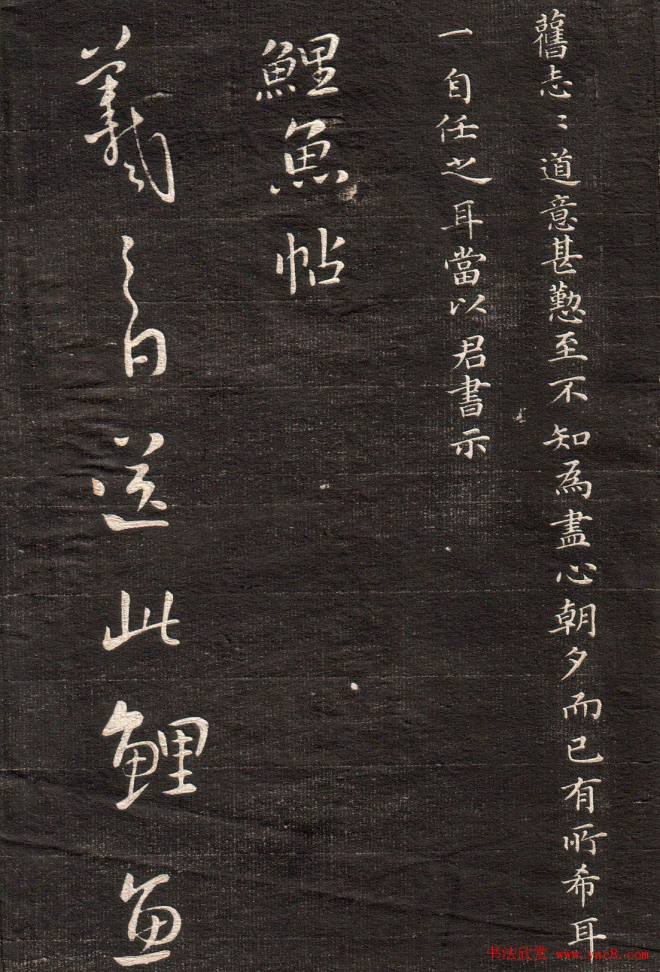 舊志〻道意甚懃至不知為盡心朝夕而已有所希耳
一自任之耳當以君書示
鯉魚帖
羲之白送此鯉魚
书法欣赏 www.yac8.com